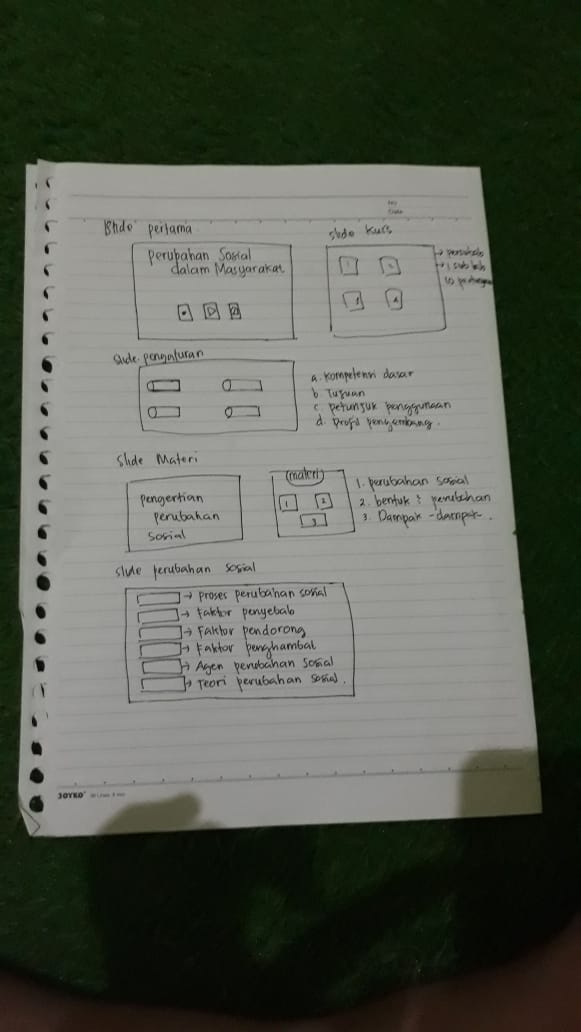 Slide pertama
perubahan Sosial
dalam Masyarakat
Slide Kuis
1
2
3
4
→ persubab
→ 1 sub bab
10
Slide pengaturan
a. Kompetensi dasar
b. Tujuan
c. petunjuk penggunaan
d. profil pengembang.
Slide Materi
pengertian
perubahan
sosial
(materi)
1
2
3
1. perubahan sosial
2. bentuk 2 perubahan
3. Dampak - dampak.
Slide perubahan sosial
→ proses perubahan sosial
→ Faktor penyebab
→ Faktor pendorong
→ Faktor penghambat
→ Agen perubahan sosial
→ Teori perubahan sosial.
JOYKO